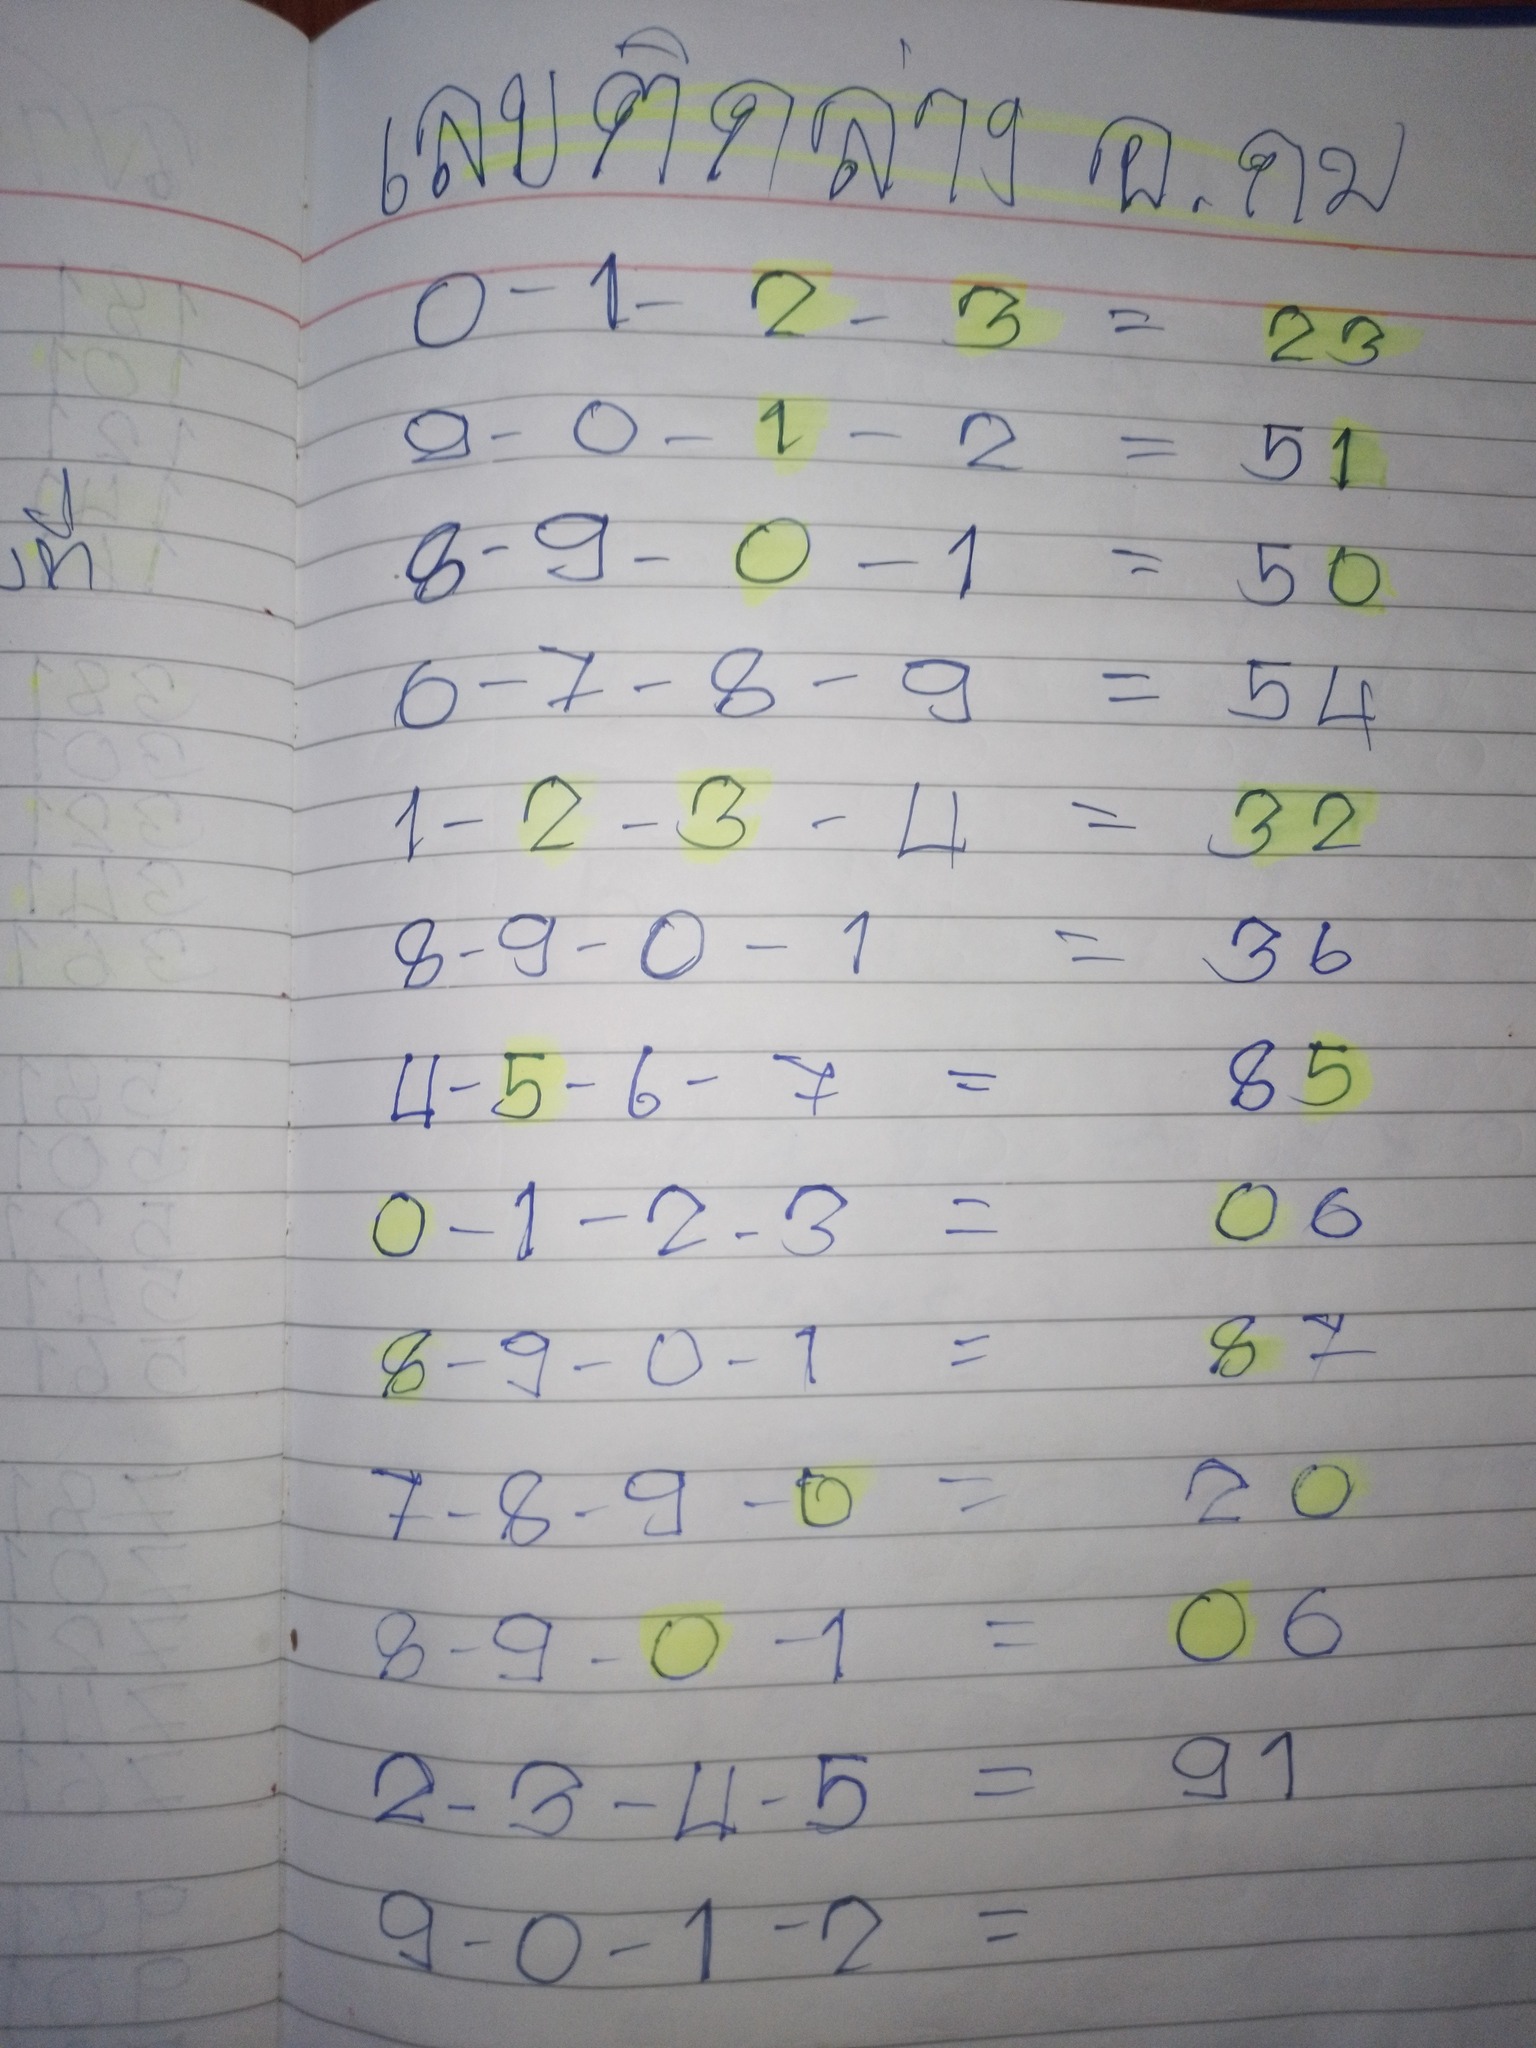 เลขติดล่าง อ.คม
0 - 1 - 2 - 3 = 23
9 - 0 - 1 - 2 = 51
8 - 9 - 0 - 1 = 50
6 - 7 - 8 - 9 = 54
1 - 2 - 3 - 4 = 32
8 - 9 - 0 - 1 = 36
4 - 5 - 6 - 7 = 85
0 - 1 - 2 - 3 = 06
8 - 9 - 0 - 1 = 87
7 - 8 - 9 - 0 = 20
8 - 9 - 0 - 1 = 06
2 - 3 - 4 - 5 = 91
9 - 0 - 1 - 2 =